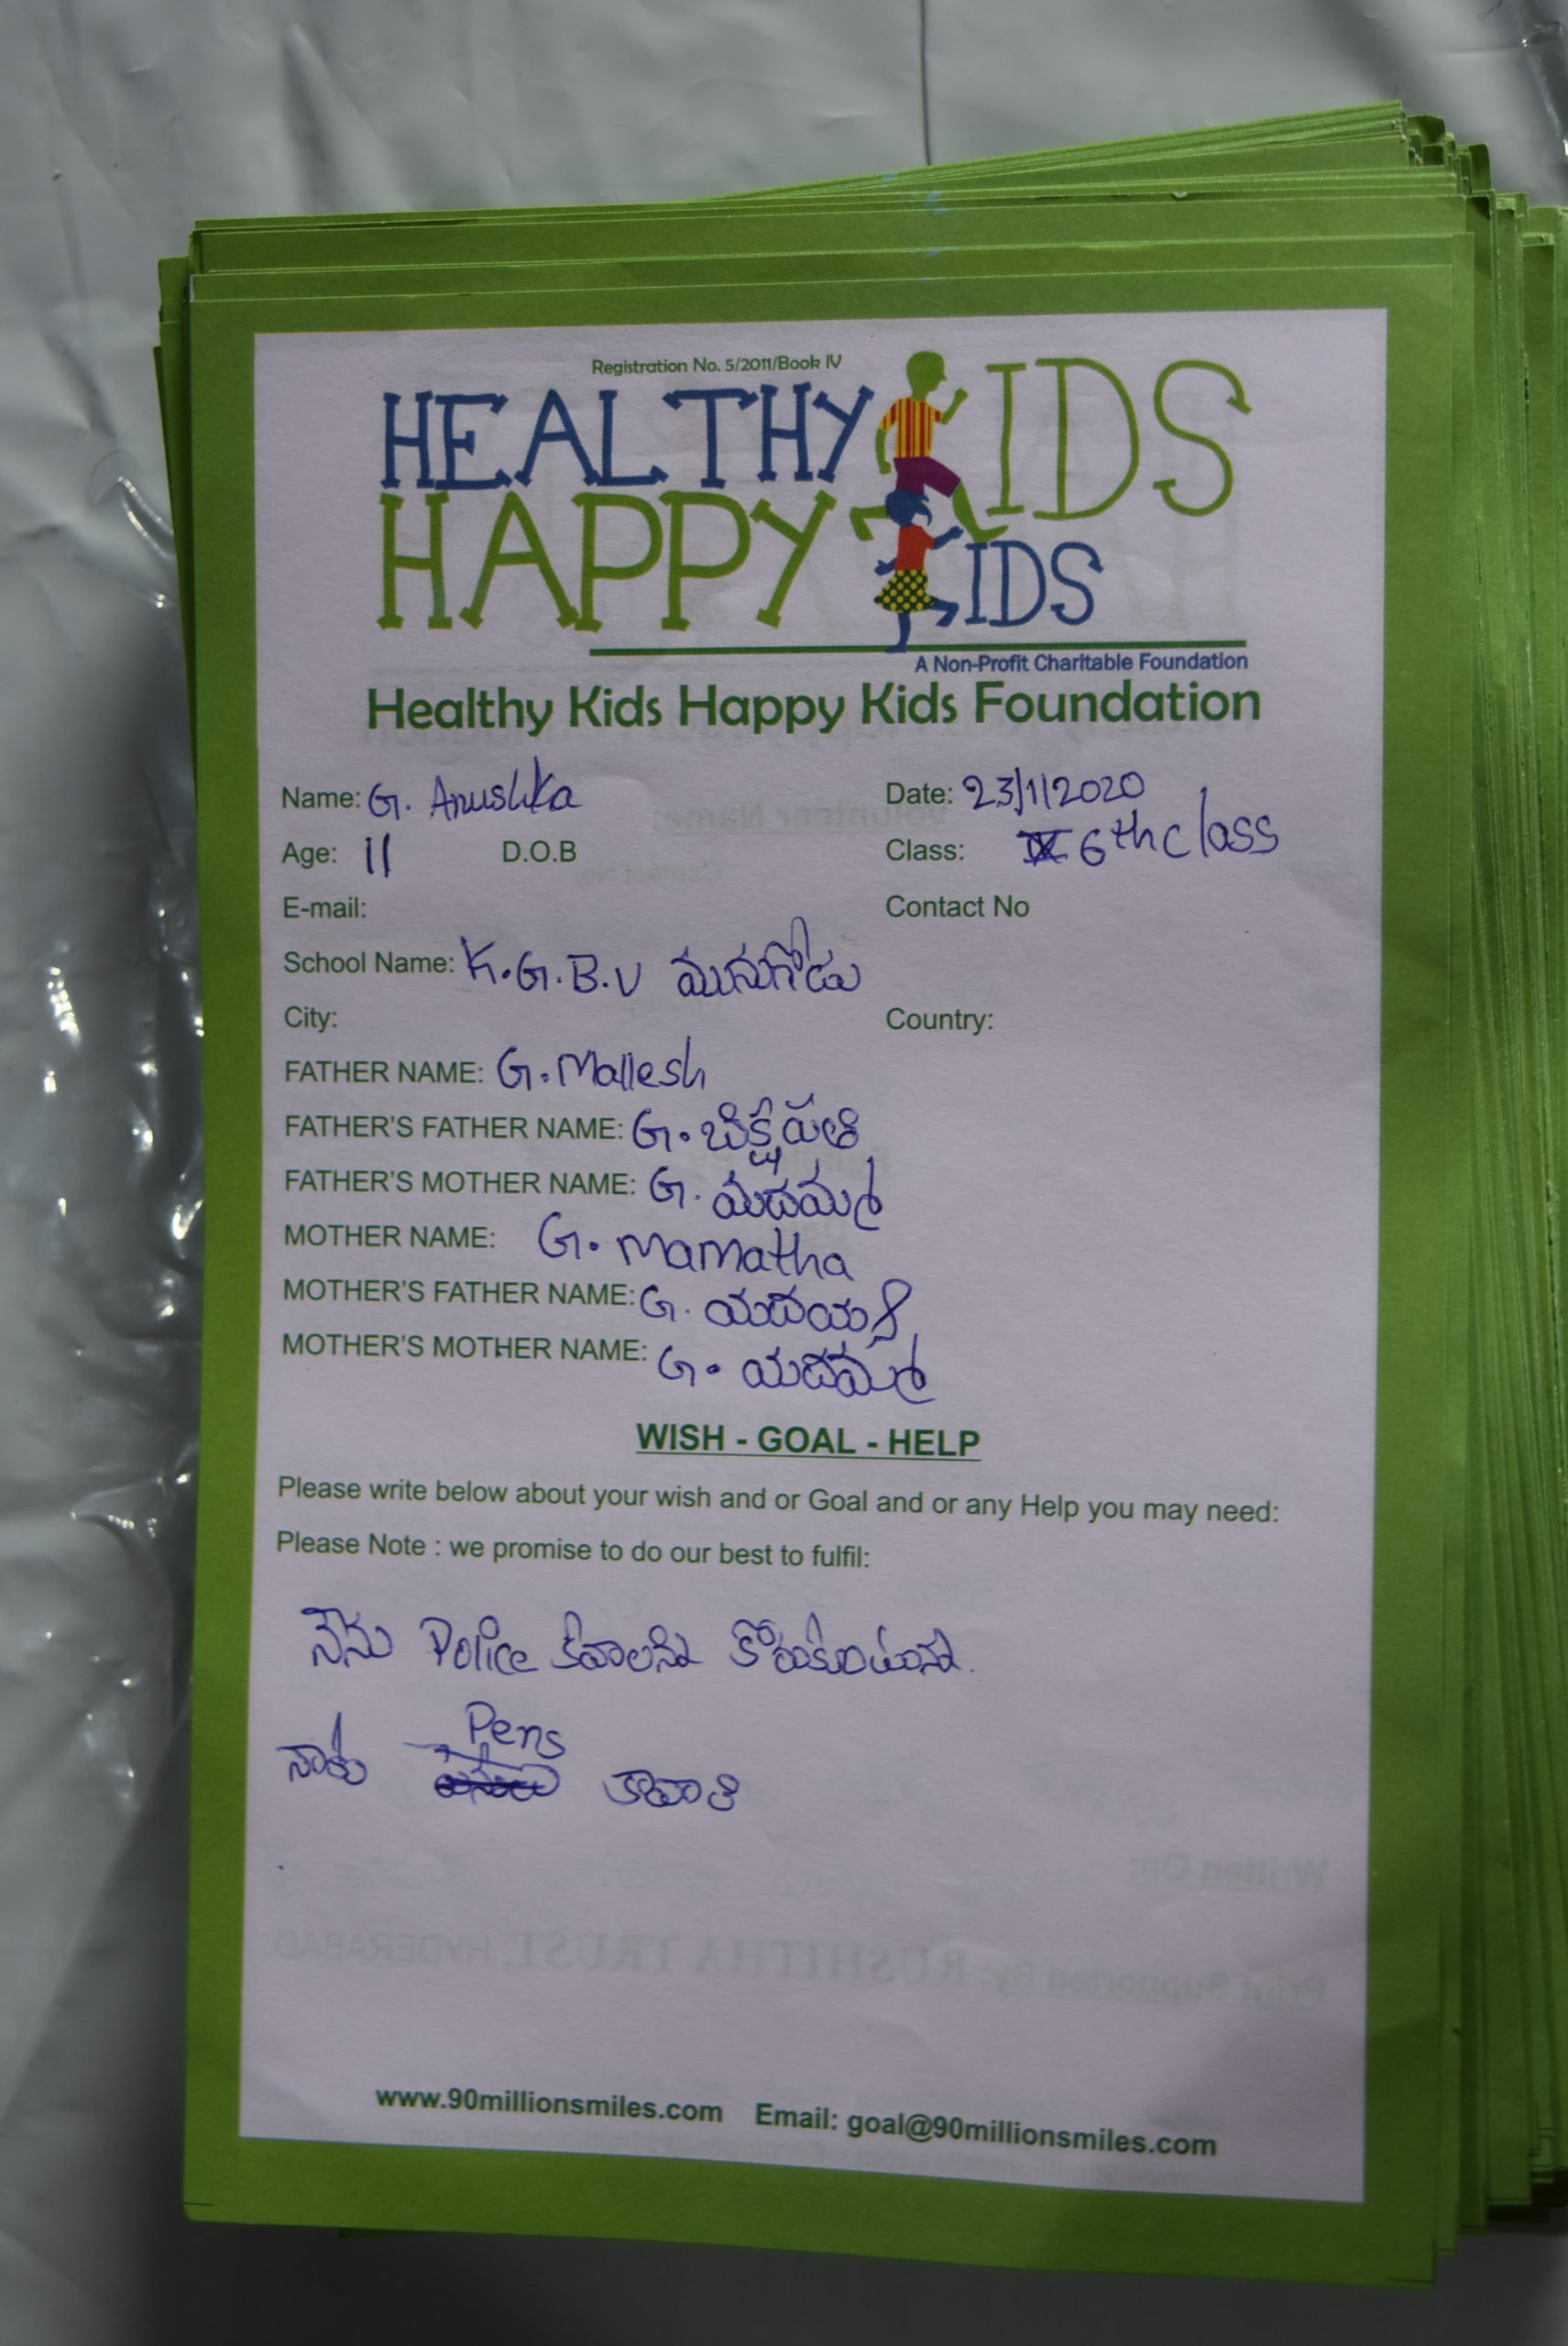 Registration No. 5/2011/Book IV
HEALTHY KIDS
HAPPY KIDS
A Non-Profit Charitable Foundation
Healthy Kids Happy Kids Foundation
Name: G. Anushka Date: 23/1/2020
Age: 11 D.O.B Class: 6th class
E-mail: Contact No
School Name: K.G.B.V మునుగోడు
City: Country:
FATHER NAME: G. Mallesh
FATHER'S FATHER NAME: G. బిక్షపతి
FATHER'S MOTHER NAME: G.
MOTHER NAME: G. Mamatha
MOTHER'S FATHER NAME: G.
MOTHER'S MOTHER NAME: G. యదమ్మ
WISH - GOAL - HELP
Please write below about your wish and or Goal and or any Help you may need:
Please Note : we promise to do our best to fulfil:
నేను Police కవాలని కోరుకుంటున్న.
Pens
నాకు కావాలి
www.90millionsmiles.com Email: goal@90millionsmiles.com